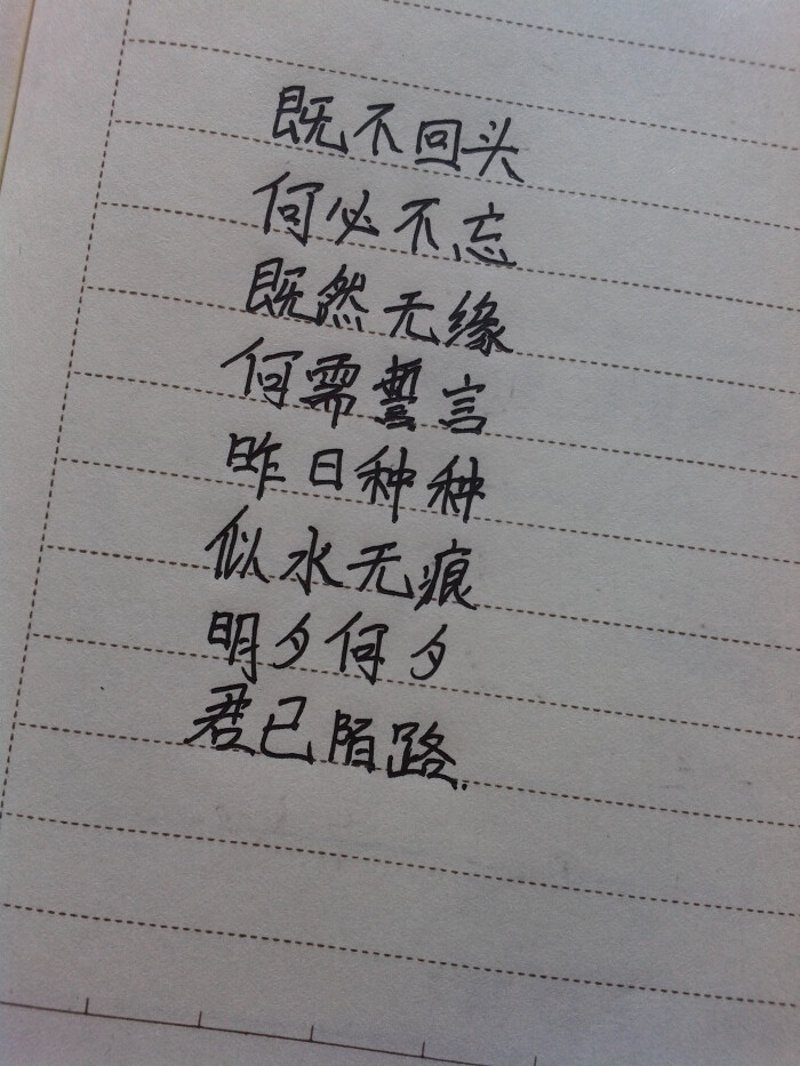 既不回头
何必不忘
既然无缘
何需誓言
昨日种种
似水无痕
明夕何夕
君已陌路.